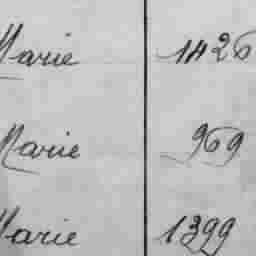 Marie 1426
Marie 969
Marie 1399